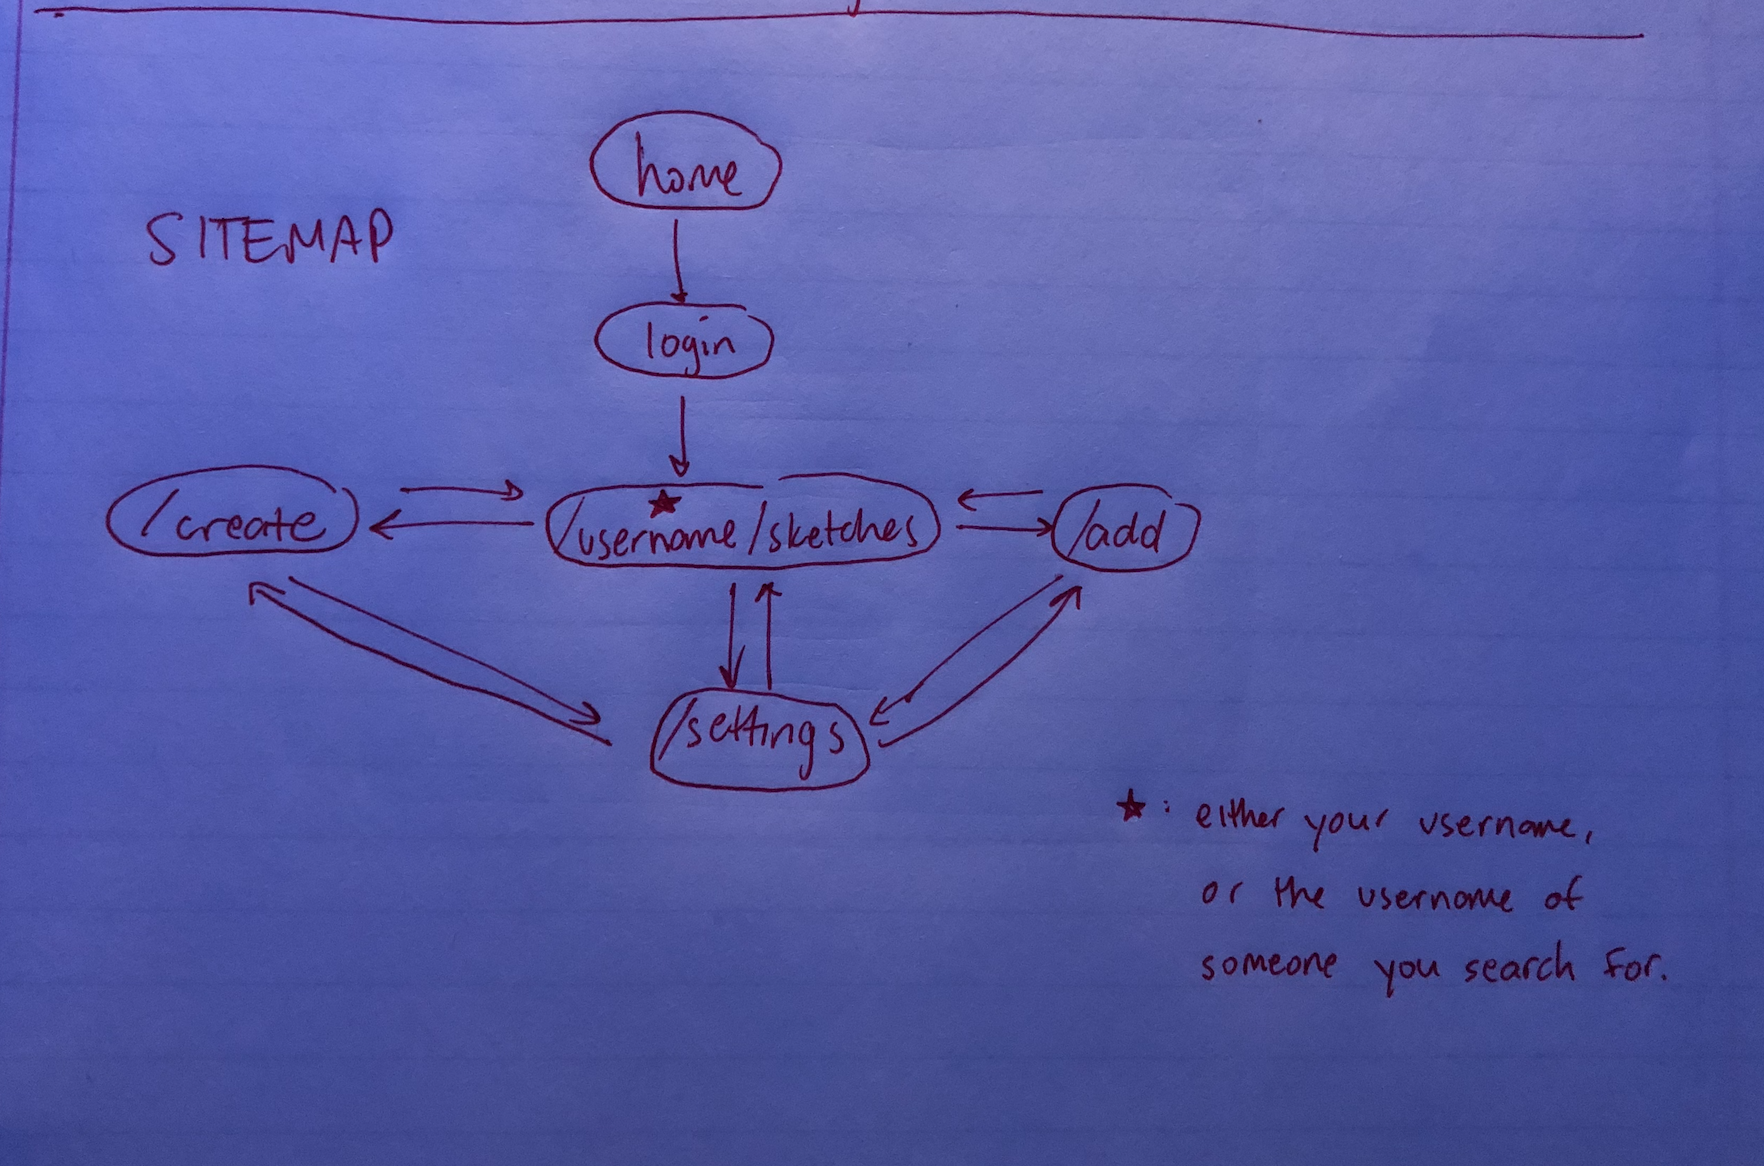 home
SITEMAP
login
/create
/username/sketches
/add
/settings
★: either your username,
or the username of
someone you search for.